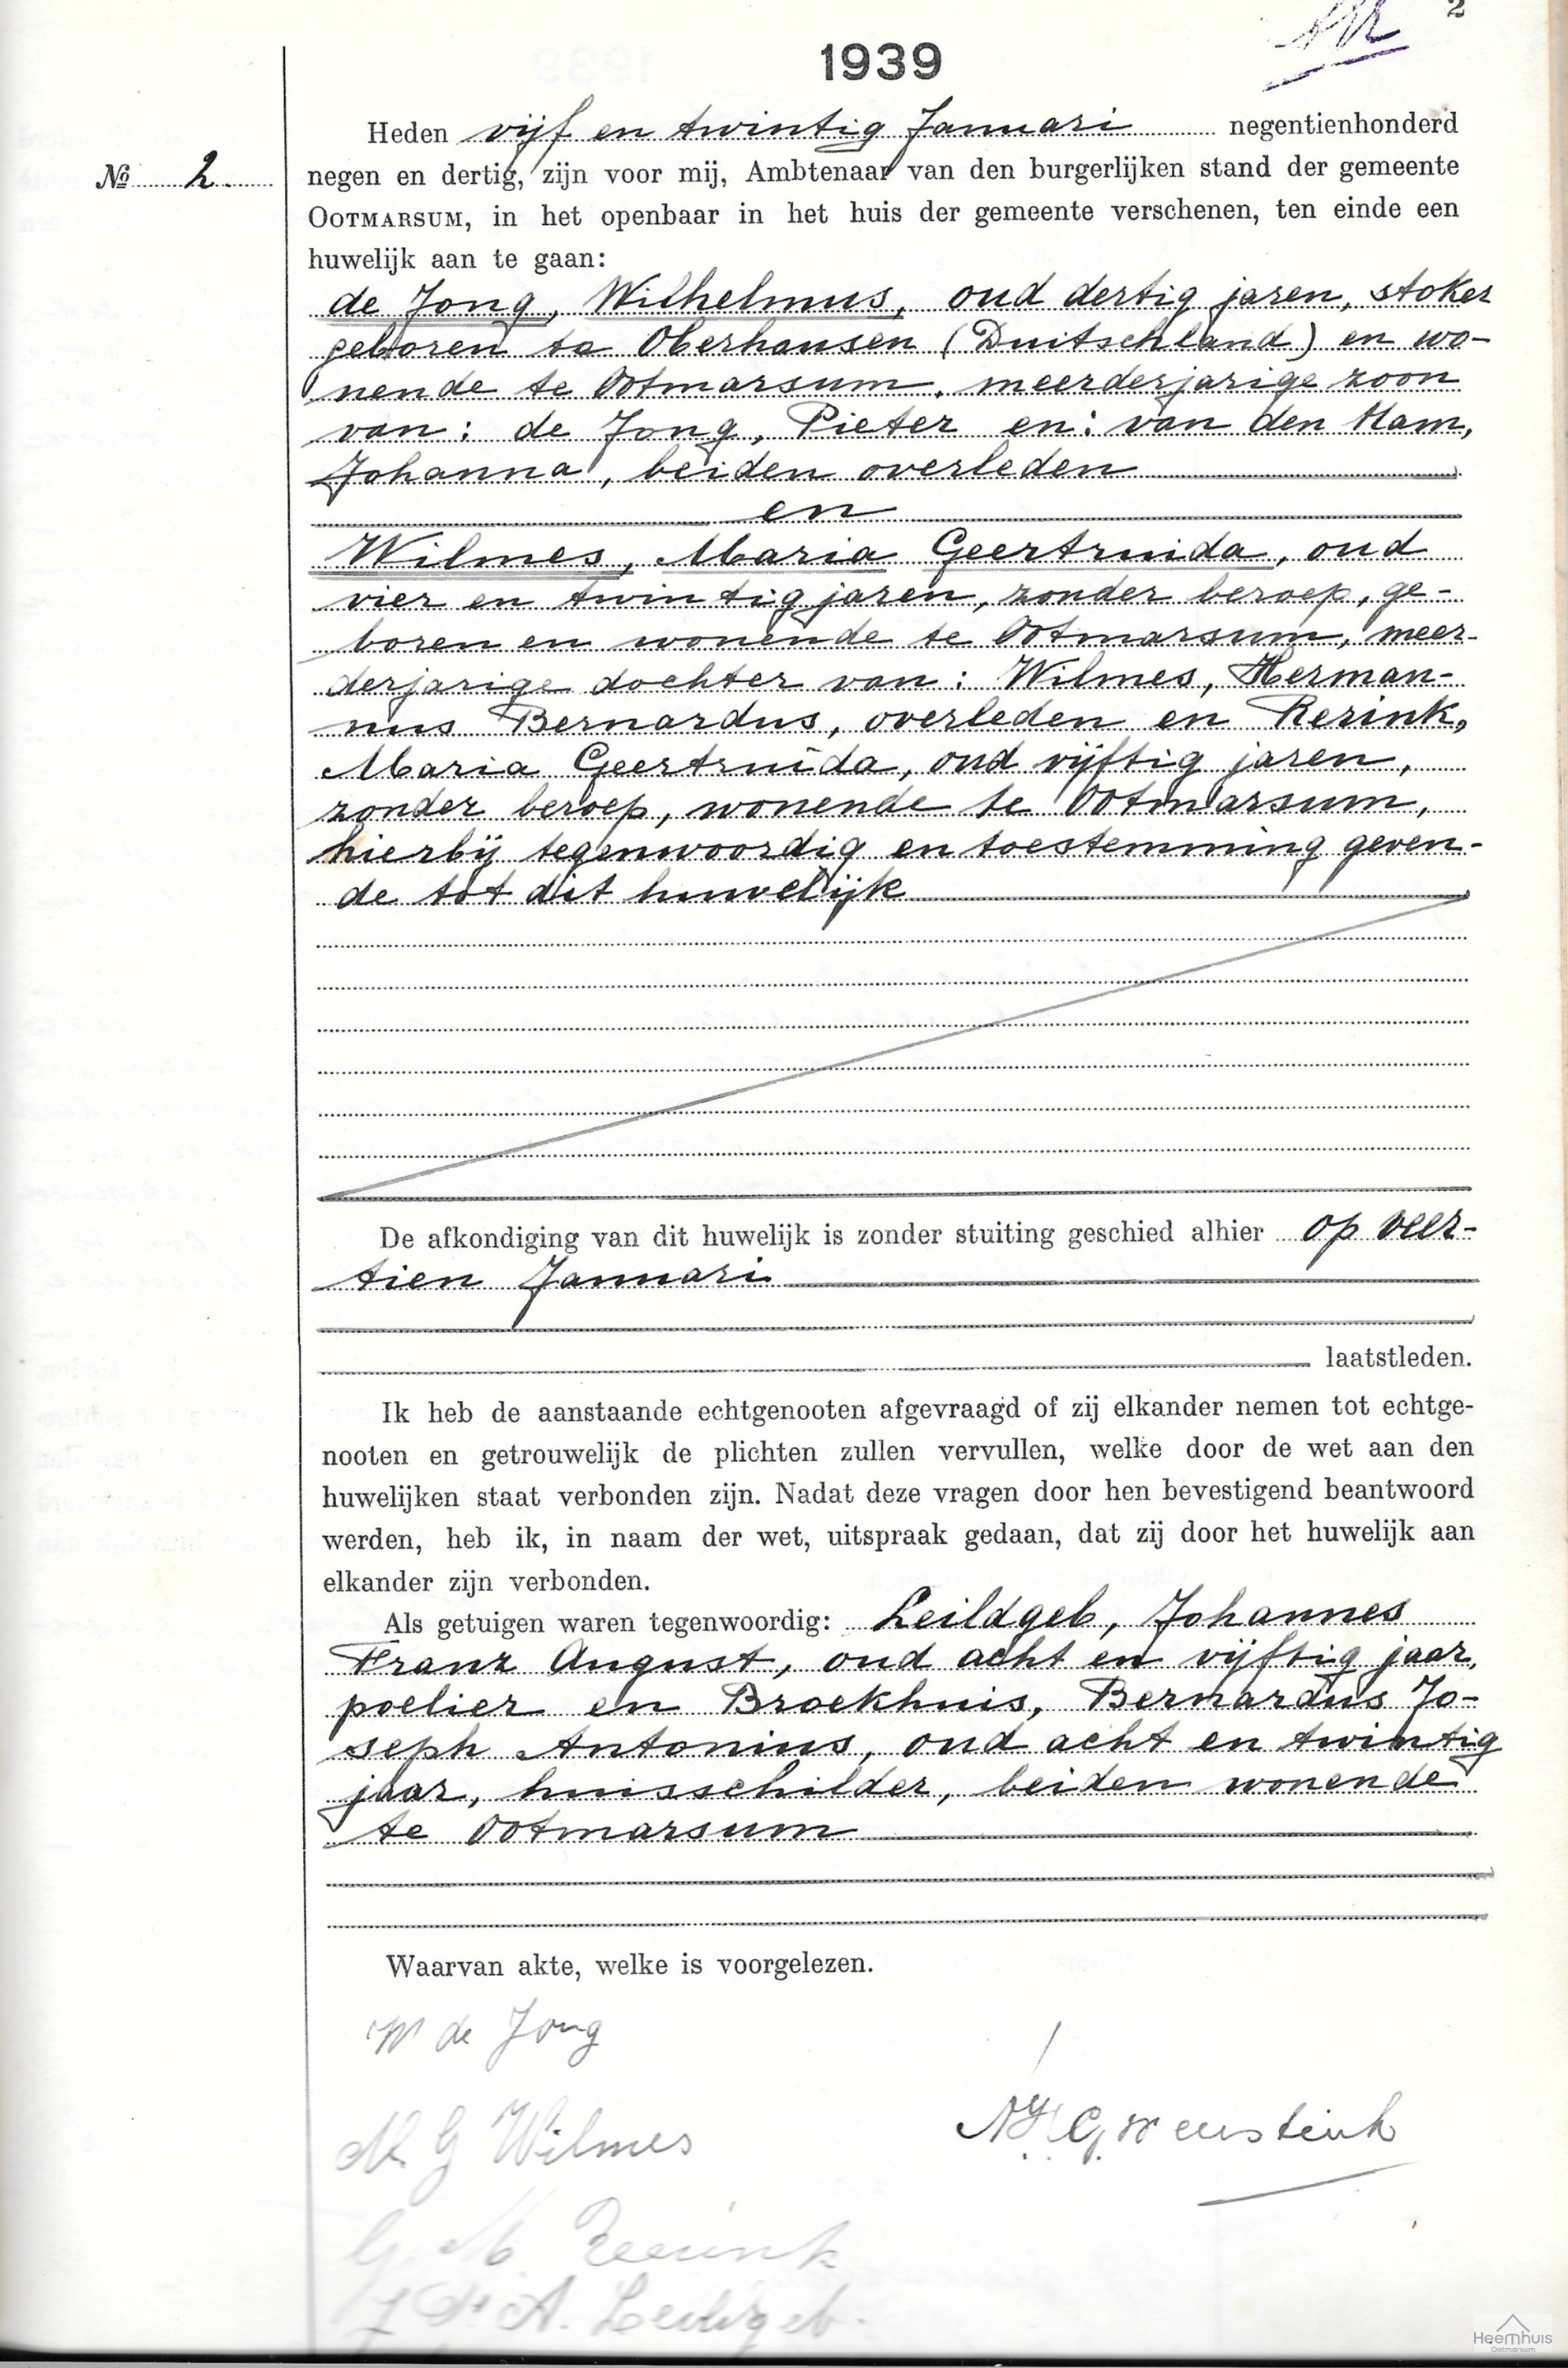 2
1939
Heden vijf en twintig Januari negentienhonderd
No 2.
negen en dertig, zijn voor mij, Ambtenaar van den burgerlijken stand der gemeente
OOTMARSUM, in het openbaar in het huis der gemeente verschenen, ten einde een
huwelijk aan te gaan:
de Jong, Wilhelmus, oud dertig jaren, stoker
geboren te Oberhausen (Duitschland) en wo-
nende te Ootmarsum, meerderjarige zoon
van: de Jong, Pieter en: van den Ham,
Johanna, beiden overleden
en
Wilmes, Maria Geertruida, oud
vier en twintig jaren, zonder beroep, ge-
boren en wonende te Ootmarsum, meer-
derjarige dochter van: Wilmes, Herman-
nus Bernardus, overleden en Rerink,
Maria Geertruida, oud vijftig jaren,
zonder beroep, wonende te Ootmarsum,
hierbij tegenwoordig en toestemming geven-
de tot dit huwelijk
De afkondiging van dit huwelijk is zonder stuiting geschied alhier op veer-
tien Januari
laatstleden.
Ik heb de aanstaande echtgenooten afgevraagd of zij elkander nemen tot echtge-
nooten en getrouwelijk de plichten zullen vervullen, welke door de wet aan den
huwelijken staat verbonden zijn. Nadat deze vragen door hen bevestigend beantwoord
werden, heb ik, in naam der wet, uitspraak gedaan, dat zij door het huwelijk aan
elkander zijn verbonden.
Als getuigen waren tegenwoordig: Leildgeb, Johannes
Franz August, oud acht en vijftig jaar,
poelier en Broekhuis, Bernardus Jo-
seph Antonius, oud acht en twintig
jaar, huisschilder, beiden wonende
te Ootmarsum
Waarvan akte, welke is voorgelezen.
W de Jong
M. G Wilmes
G M Reerink
Heemhuis
Ootmarsum